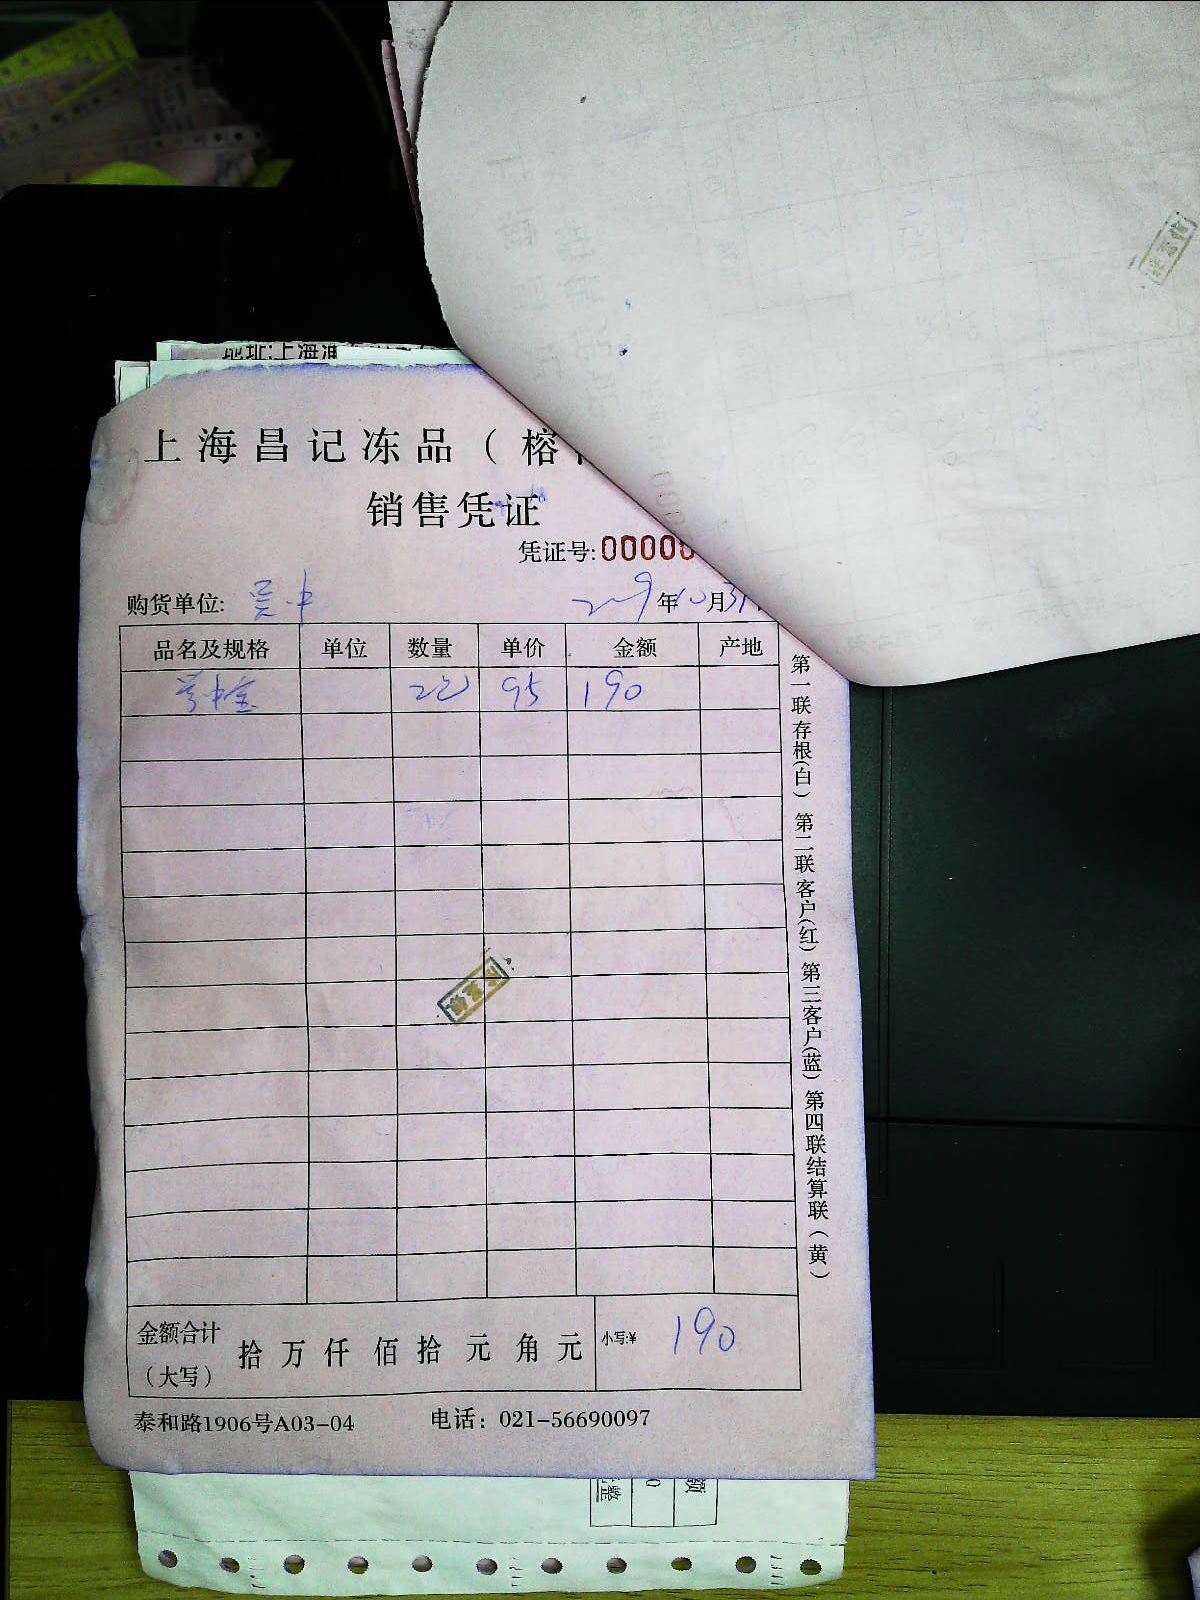 地址:上海
上海昌记冻品（榕
销售凭证
凭证号:00000
购货单位: 吴中 2019年10月31
品名及规格 单位 数量 单价 金额 产地
95 190
金额合计（大写） 拾 万 仟 佰 拾 元 角 元 小写:¥ 190
泰和路1906号A03-04 电话：021-56690097
第一联存根(白) 第二联客户(红) 第三客户(蓝) 第四联结算联(黄)
额
0
整